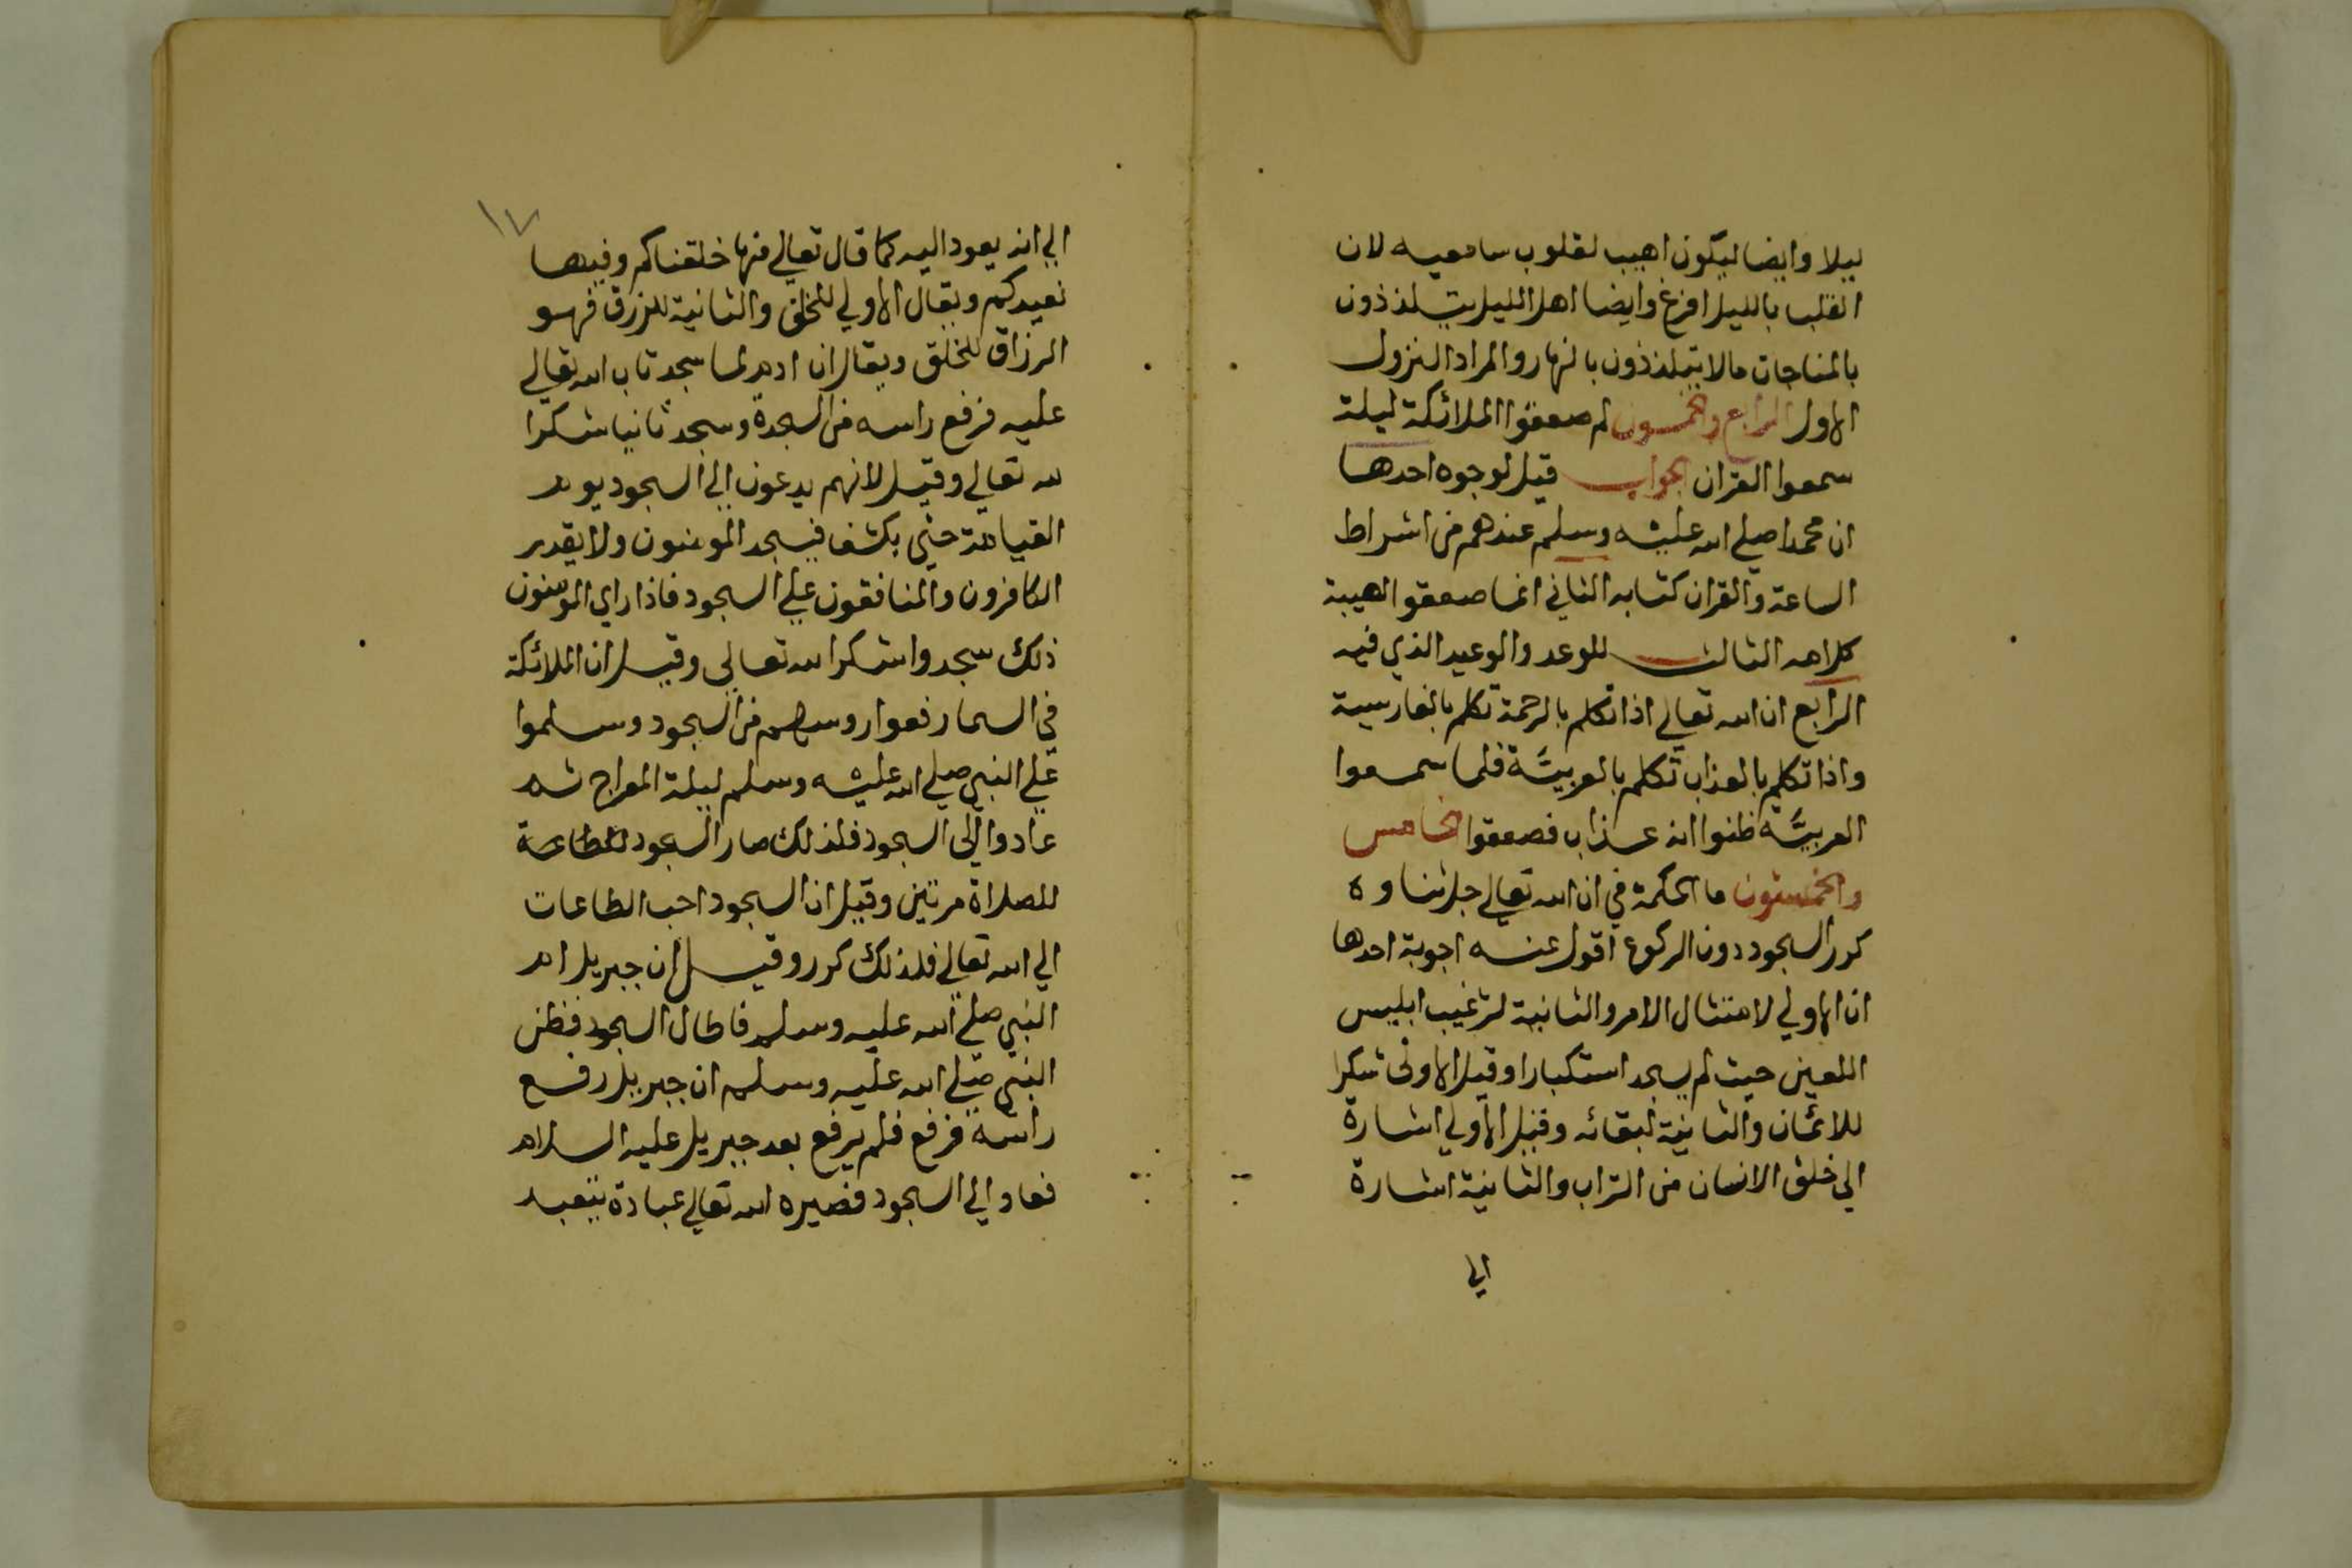 ليلا وايضا ليكون اهيب لقلوب سامعيه لان
القلب بالليل افرغ وايضا اهل الليل يتلذذون
بالمناجات مالا يتلذذون بالنهار والمراد النزول
الاول الرابع والخمسون لم صعقوا الملائكة ليلة
سمعوا القران الجواب قيل لوجوه احدها
ان محمدا صلي الله عليه وسلم عندهم من اشراط
الساعة والقران كتابه الثاني انما صعقوا لهيبة
كلامه الثالث للوعد والوعيد الذي فيه
الرابع ان الله تعالي اذا تكلم بالرحمة تكلم بالفارسية
واذا تكلم بالعذاب تكلم بالعربية فلما سمعوا
العربية ظنوا انه عذاب فصعقوا الخامس
والخمسون ما الحكمة في ان الله تعالي جل ثناوه
كرر السجود دون الركوع اقول عنه اجوبة احدها
ان الاولي لامتثال الامر والثانية لترغيب ابليس
اللعين حيث لم يسجد استكبارا وقيل الاولي شكرا
للائمان والثانية لبقائه وقيل الاولي اشارة
الي خلق الانسان من التراب والثانية اشارة
الي
١٧
الي انه يعود اليه كما قال تعالي منها خلقناكم وفيها
نعيدكم ويقال الاولي للخلق والثانية للرزق فهو
الرزاق للخلق ويقال ان ادم لما سجد تاب الله تعالي
عليه فرفع راسه من السجدة وسجد ثانيا شكرا
لله تعالي وقيل لانهم يدعون الي السجود يوم
القيامة حتي يكشف فيسجد المومنون ولا يقدر
الكافرون والمنافقون علي السجود فاذا راي المومنون
ذلك سجدوا شكرا لله تعالي وقيل ان الملائكة
في السما رفعوا روسهم من السجود وسلموا
علي النبي صلي الله عليه وسلم ليلة المعراج ثم
عادوا الي السجود فلذلك صار السجود
للصلاة مرتين وقيل ان السجود احب الطاعات
الي الله تعالي فلذلك كرر وقيل ان جبريل ام
النبي صلي الله عليه وسلم فاطال السجود فظن
النبي صلي الله عليه وسلم ان جبريل رفع
راسه فرفع فلم يرفع بعد جبريل عليه السلام
فعاد الي السجود فصيره الله تعالي عبادة يتعبد